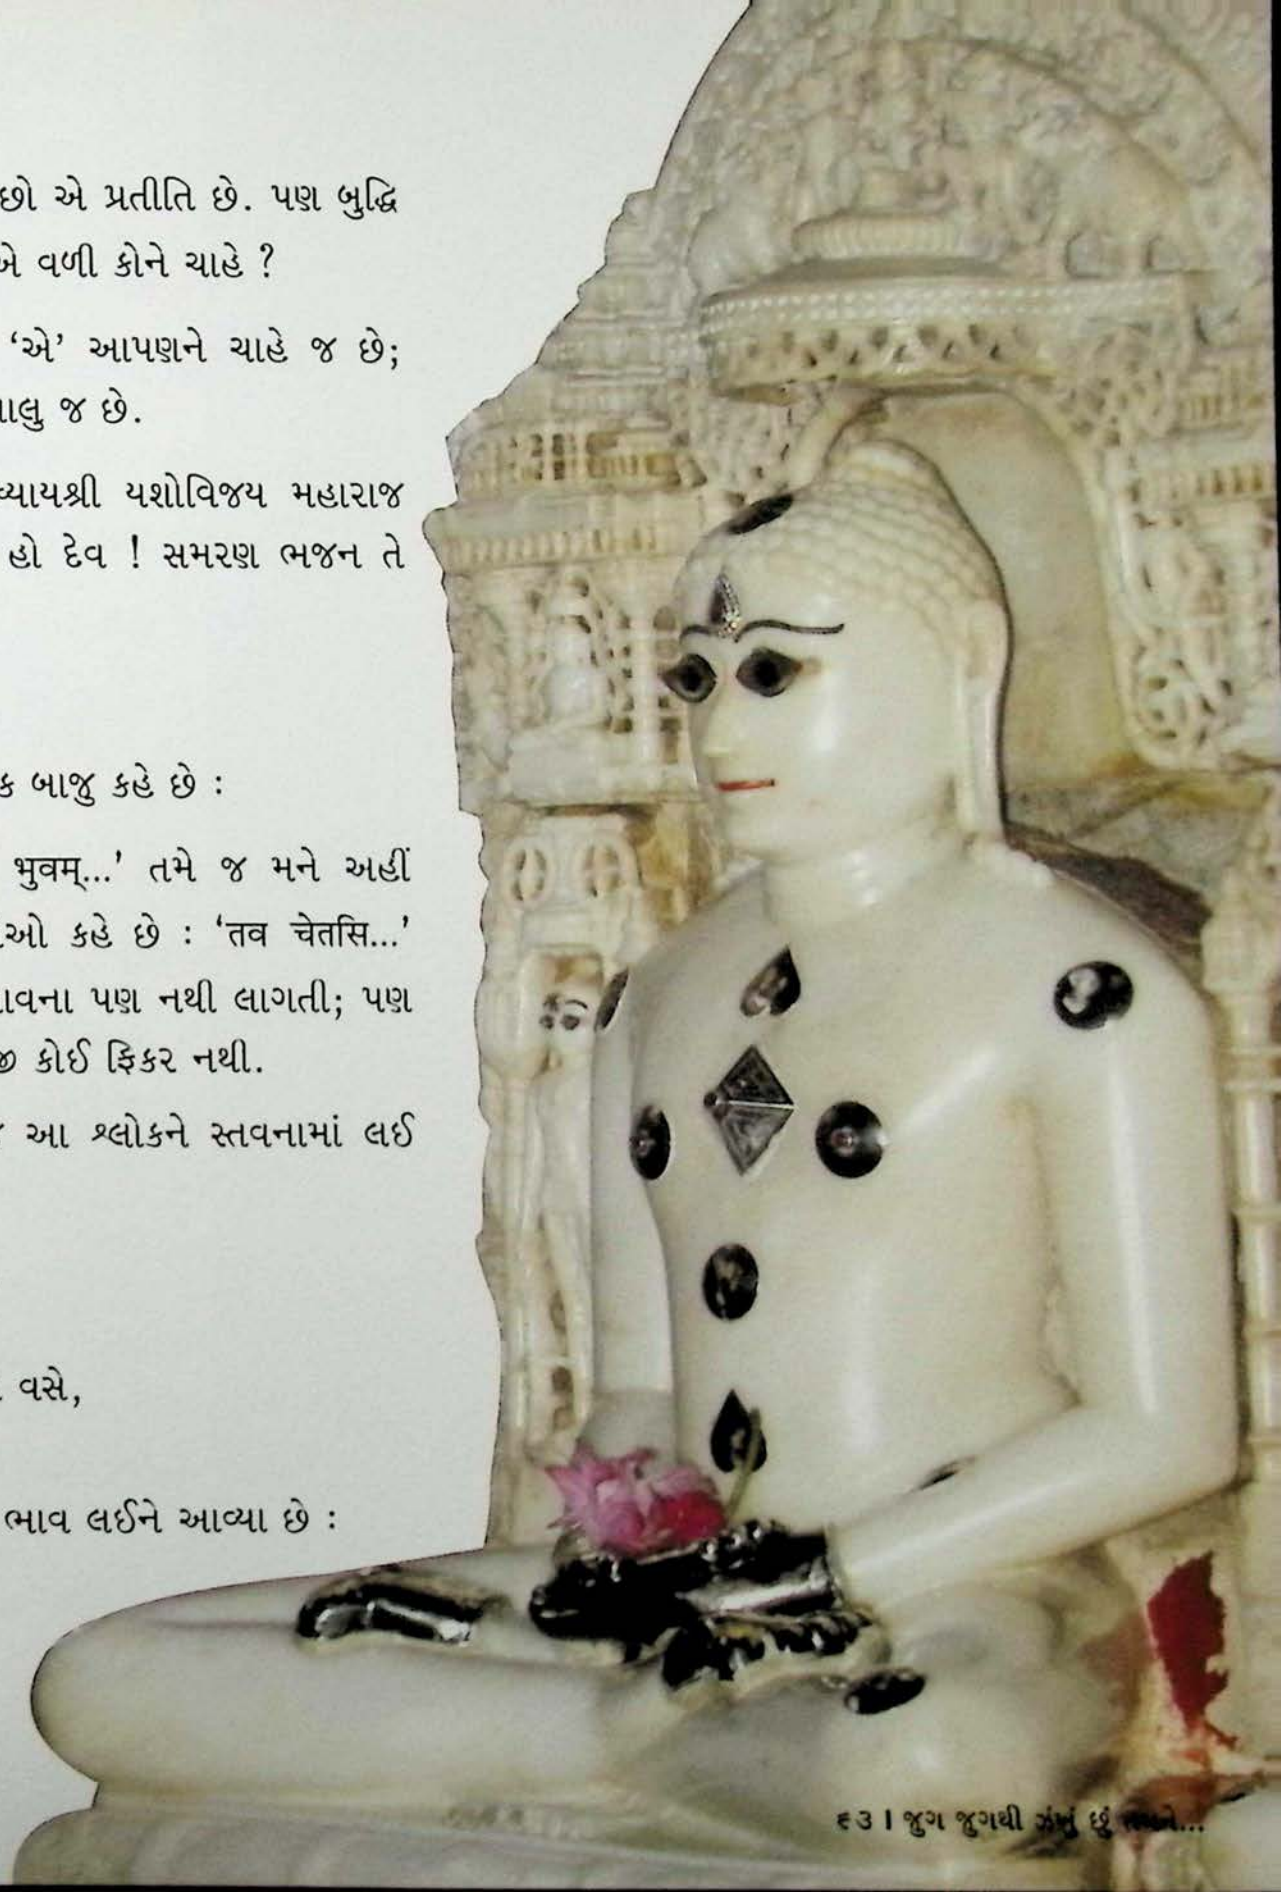 છો એ પ્રતીતિ છે. પણ બુદ્ધિ
એ વળી કોને ચાહે ?
‘એ’ આપણને ચાહે જ છે;
જ છે.
યશોવિજય મહારાજ
હો દેવ ! સમરણ ભજન તે
બાજુ કહે છે :
भुवम्...’ તમે જ મને અહીં
કહે છે : ‘तव चेतसि...’
પણ નથી લાગતી; પણ
કોઈ ફિકર નથી.
આ શ્લોકને સ્તવનામાં લઈ
વસે,
ભાવ લઈને આવ્યા છે :
૬૩ । જુગ જુગથી ઝંખું છું